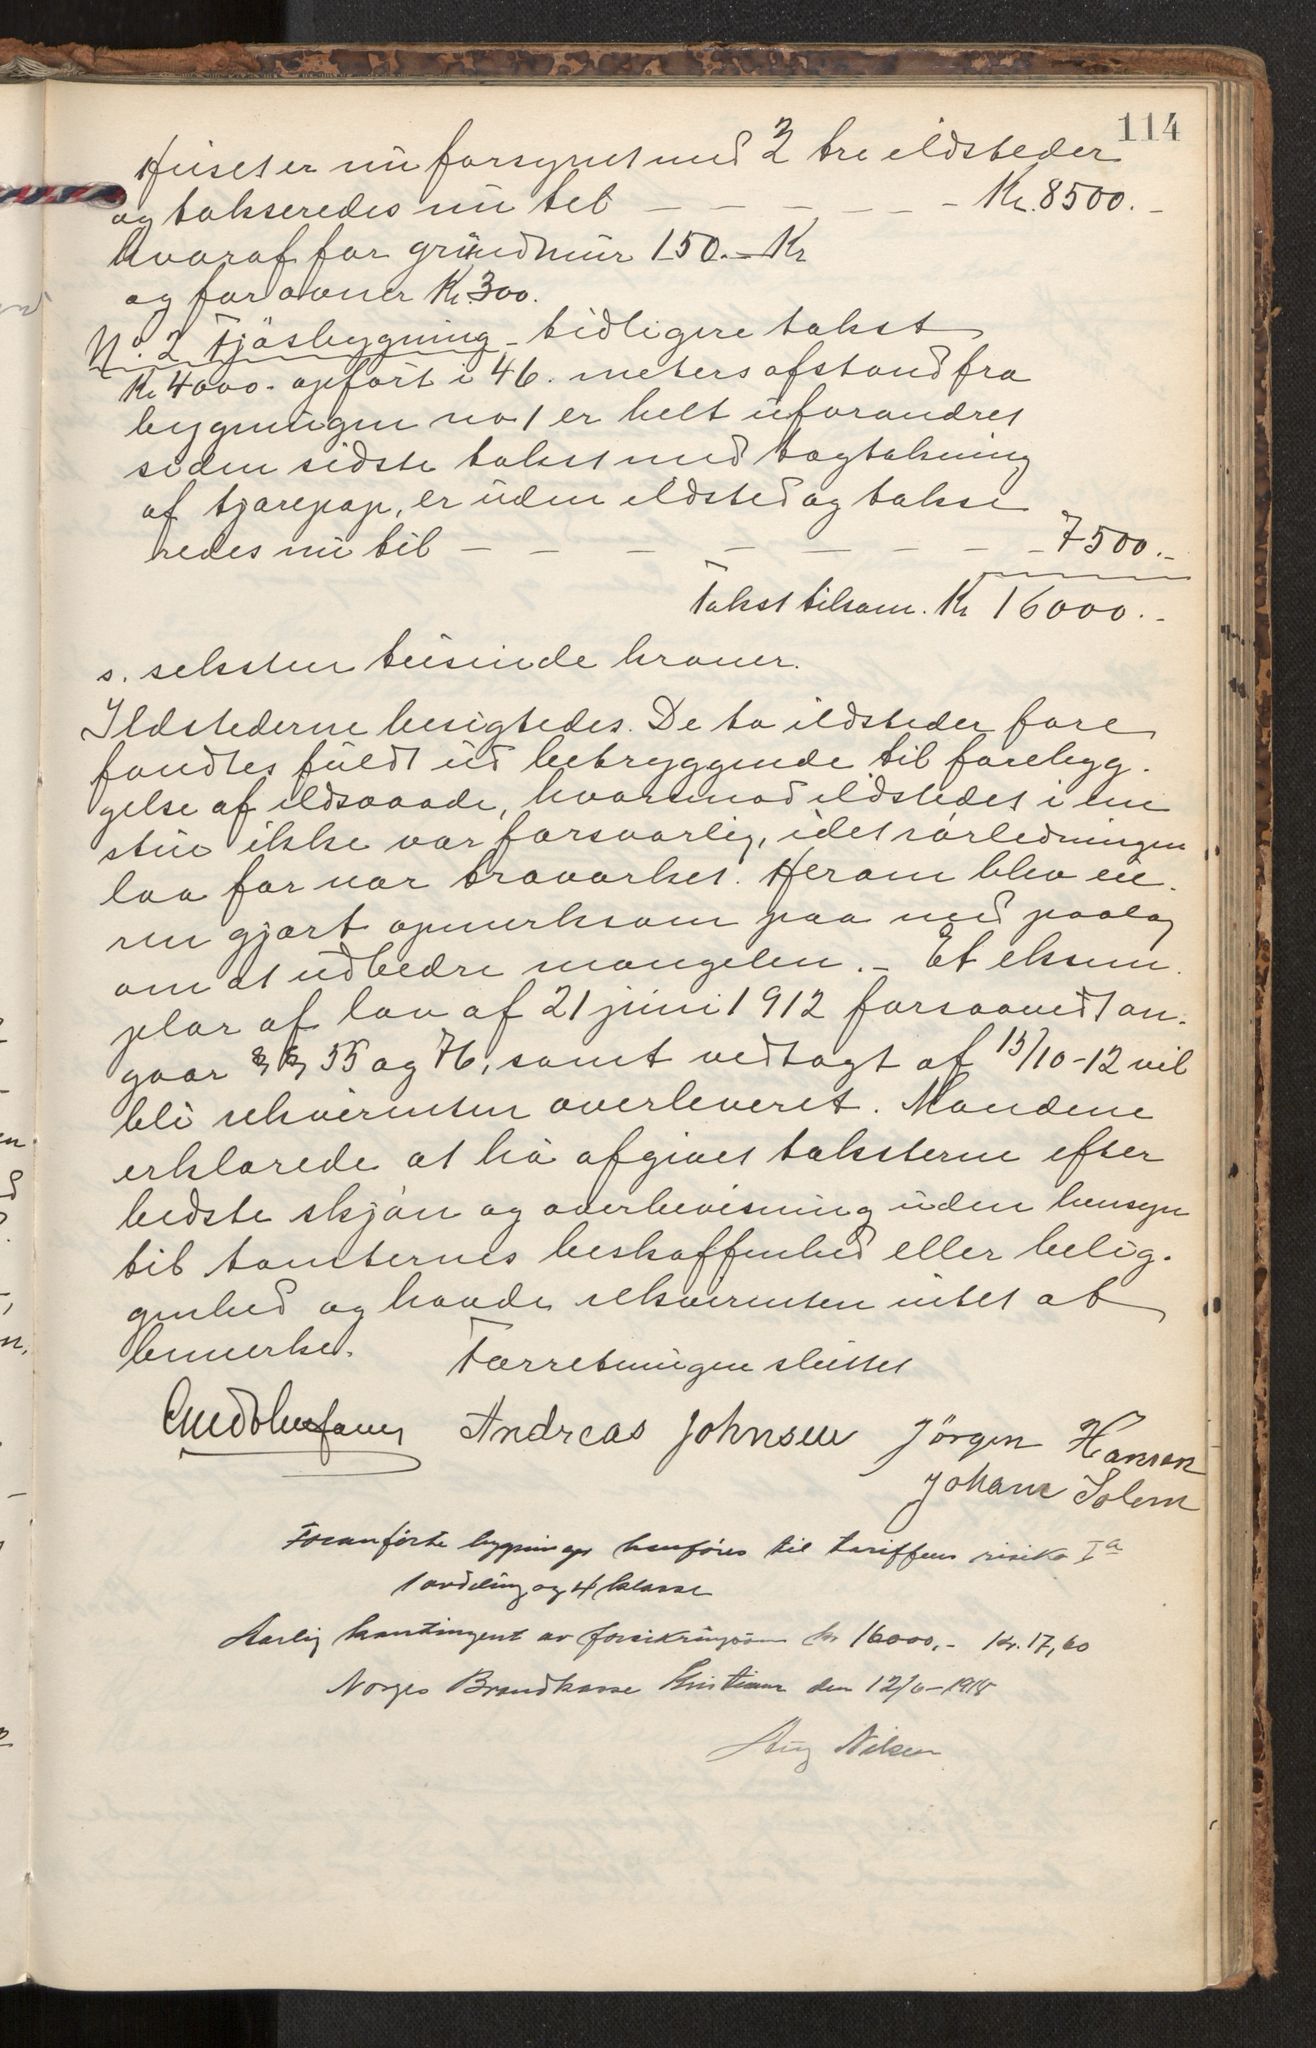 114
Huset er nu forsynet med 3 tre ildsteder
og takseredes nu til — — — — — — Kr. 8500.–
hvoraf for grundmur 150.– Kr
og for ovner Kr. 300.
No. 2 Fjøsbygning – tidligere takst
Kr 4000.– opført i 46. meters afstand fra
bygningen no 1 er helt uforandret
siden sidste takst med tagtækning
af tjærepap, er uden ildsted og takse
redes nu til — — — — — — — — 7500.–
Takst tilsam. Kr 16000.–
s. seksten tusinde kroner.
Ildstederne besigtedes. De to ildsteder fore
fandtes fuldt ud betryggende til forebyg-
gelse af ildsvaade, hvorimod ildstedet i ene
stue ikke var forsvarlig, idet rørledningen
laa for nær træværket. Herom blev eie-
ren gjort opmerksom paa med paalæg
om at udbedre mangelen. – Et eksem-
plar af lov af 21 juni 1912 forsaavidt an-
gaar §§ 55 og 76, samt vedtægt af 15/10-12 vil
bli rekvirenten overleveret. Mændene
erklærede at ha afgivet taksterne efter
bedste skjøn og overbevisning uden hensyn
til tomternes beskaffenhed eller belig-
genhed og havde rekvirenten intet at
bemerke. Forretningen sluttet
Andreas Johnsen Jörgen Hansen
Johan Solem
Foranførte bygninger henføres til tariffens risiko Ia
1 avdeling og 4 klasse
Aarlig kontingent av forsikringssum kr 16000,– Kr. 17,60
Norges Brandkasse Kristiania den 12/6-1918
Aug Nilsen